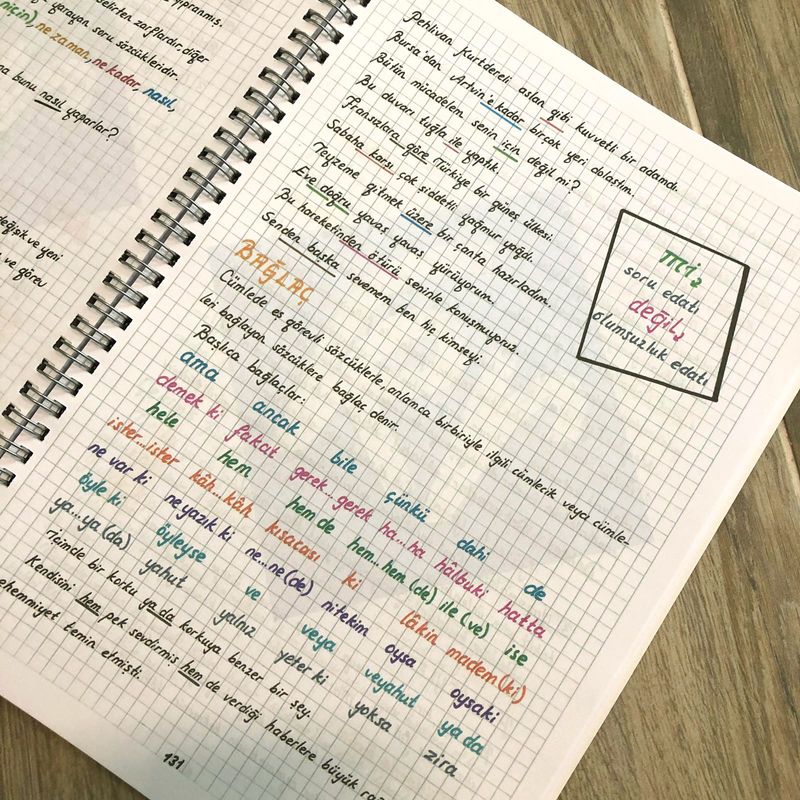 yıpranmış.
belirten zarflardır, diğer
yarayan soru sözcükleridir.
niçin), ne zaman, ne kadar, nasıl,
bunu nasıl yaparlar?
değişik ve yeni
ve görev
Pehlivan Kurtdereli aslan gibi kuvvetli bir adamdı.
Bursa'dan Artvin'e kadar birçok yeri dolaştım.
Bütün mücadelem senin için değil mi?
Bu duvarı tuğla ile yaptık.
Fransızlara göre Türkiye bir güneş ülkesi.
Sabaha karşı çok şiddetli yağmur yağdı.
Teyzeme gitmek üzere bir çanta hazırladım.
Eve doğru yavaş yavaş yürüyorum.
Bu hareketinden ötürü seninle konuşmuyoruz.
Senden başka sevemem ben hiç kimseyi.
mi,
soru edatı
değil,
olumsuzluk edatı
BAĞLAÇ
Cümlede eş görevli sözcüklerle, anlamca birbiriyle ilgili cümlecik veya cümle-
leri bağlayan sözcüklere bağlaç denir.
Başlıca bağlaçlar:
ama ancak bile çünkü dahi de
demek ki fakat gerek...gerek ha...ha hâlbuki hatta
hele hem hem de hem...hem (de) ile (ve) ise
ister...ister kâh...kâh kısacası ki lâkin madem(ki)
ne var ki ne yazık ki ne...ne(de) nitekim oysa oysaki
öyle ki öyleyse ve veya veyahut ya da
ya...ya (da) yahut yalnız yeter ki yoksa zira
İçimde bir korku ya da korkuya benzer bir şey.
Kendisini hem pek sevdirmiş hem de verdiği haberlere büyük
ehemmiyet temin etmişti.
131